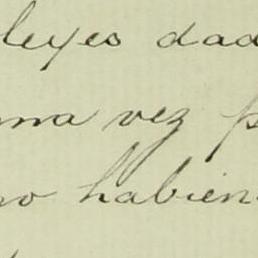 leyes dad
ma vez p
no habien